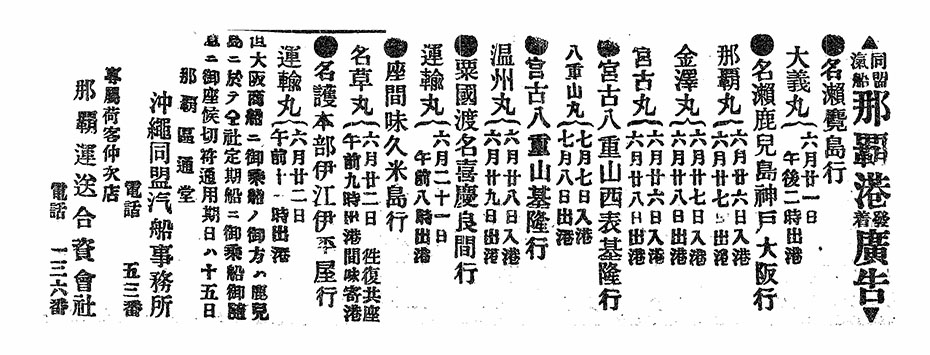 ▲同盟汽船那覇港發着廣告▼
●名瀨鹿島行
大義丸 六月廿一日 午後二時出港
●名瀨鹿兒島神戸大阪行
那覇丸 六月廿六日入港 六月廿七日出港
金澤丸 六月廿七日入港 六月廿八日出港
宮古丸 六月廿六日入港 六月廿八日出港
●宮古八重山西表基隆行
八重山丸 七月七日入港 七月八日出港
●宮古八重山基隆行
温州丸 六月廿八日入港 六月廿九日出港
●粟國渡名喜慶良間行
運輸丸 六月二十一日 午前八時出港
●座間味久米島行
名草丸 六月廿二日 徃復共座 午前九時出港間味寄港
●名護本部伊江伊平屋行
運輸丸 六月廿二日 午前十一時出港
但大阪商船ニ御乘船ノ御方ハ鹿兒
島ニ於テ仝社定期船ニ御乘船御隨
意ニ御座候切符通用期日ハ十五日
那覇區通堂
沖繩同盟汽船事務所
電話 五三番
專屬荷客仲次店
那覇運送合資會社
電話 一三六番